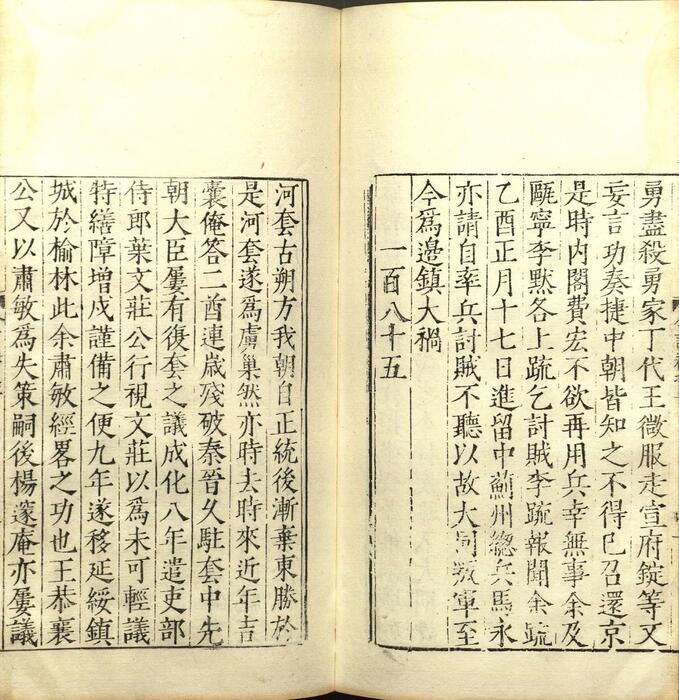 勇盡殺勇家丁代王微服走宣府錠等文
妄言功奏捷中朝皆知之不得已召還京
是時内閣費宏不欲再用兵幸無事余及
甌寧李黙各上疏乞討賊李疏報聞余疏
乙酉正月十七日進留中薊州總兵馬永
亦請自率兵討賊不聽以故大同叛軍至
今爲邊鎮大禍
一百八十五
河套古朔方我朝自正統後漸棄東勝於
是河套遂爲虜巢然亦時去時來近年吉
囊俺答二酋連歲殘破秦晉久駐套中先
朝大臣屢有復套之議成化八年遣吏部
侍郎葉文莊公行視文莊以爲未可輕議
特繕障增戍謹備之便九年遂移延綏鎮
城於榆林此余肅敏經畧之功也王恭襄
公又以肅敏爲失策嗣後楊邃庵亦屢議